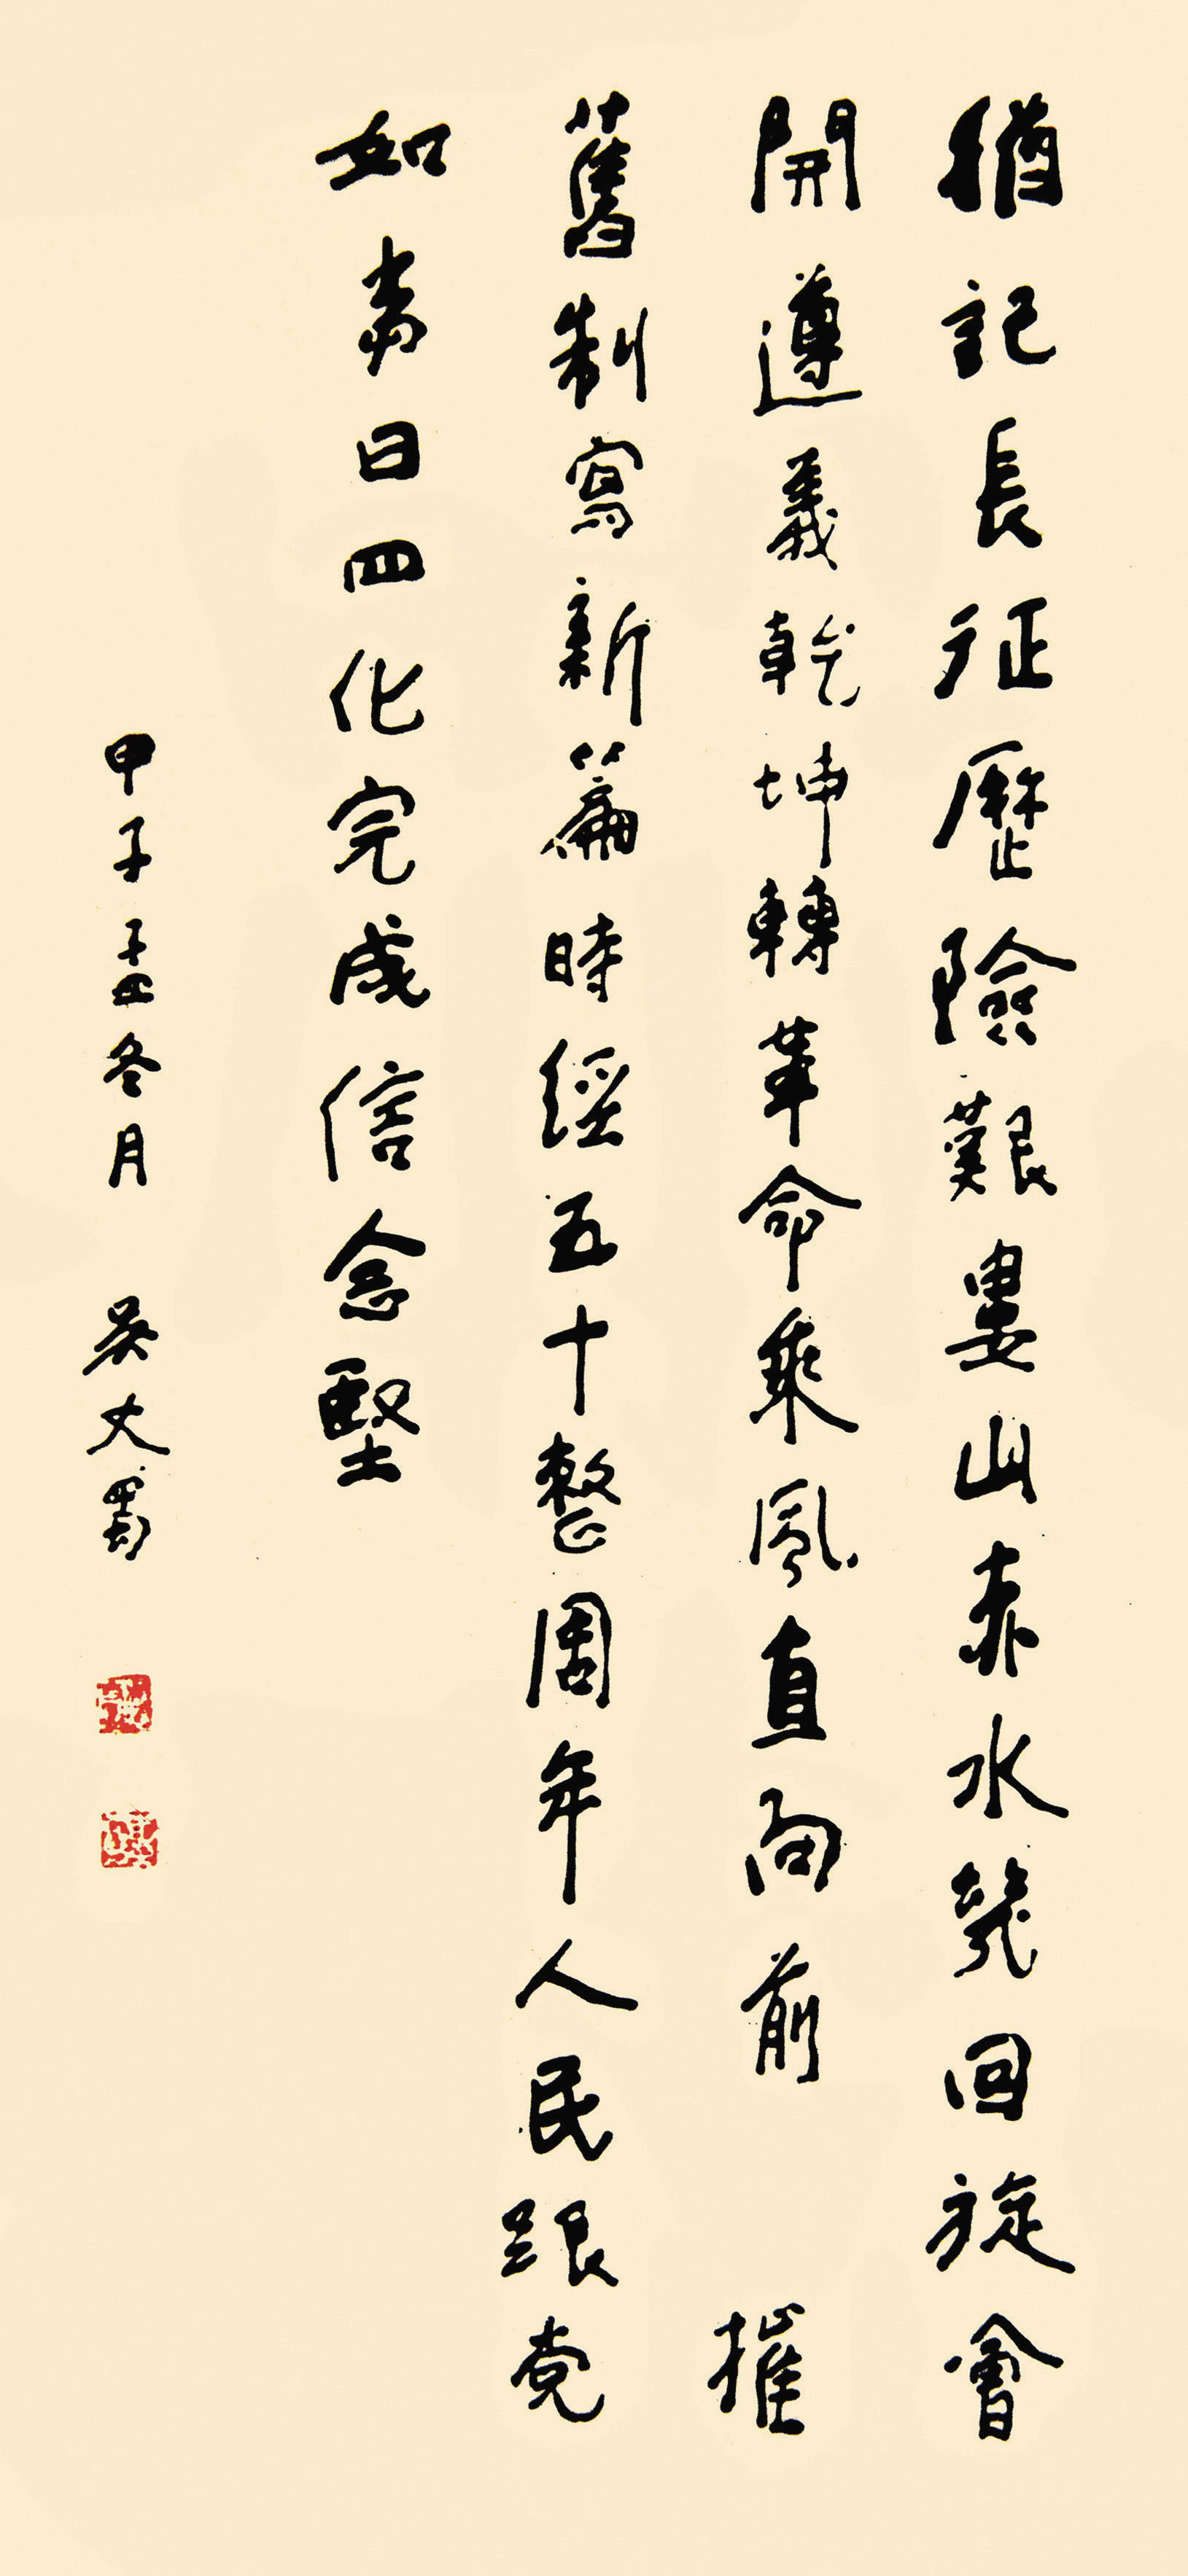 猶記長征歷險艱婁山赤水幾回旋會
開遵義乾坤轉革命乘風直向前 摧
舊制寫新篇時經五十整周年人民跟党
如當日四化完成信念堅
甲子孟冬月 吴丈蜀